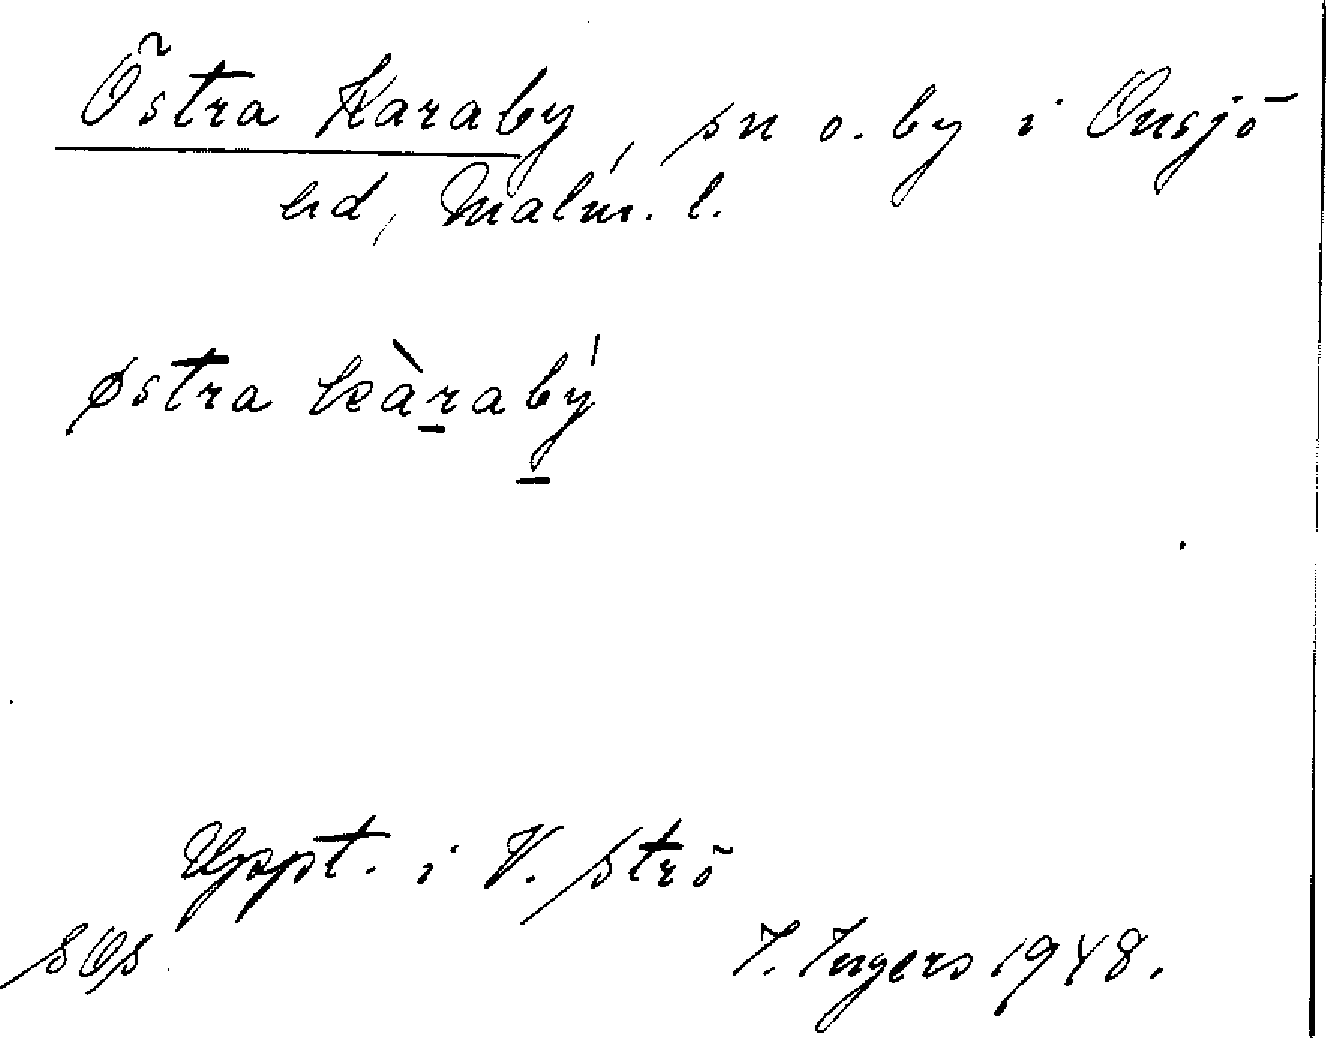 Östra Karaby, sn o. by i Onsjö
hd, Malm. l.
østra kàrabý
Uppt. i V. Strö
SOs
I. Ingers 1948.